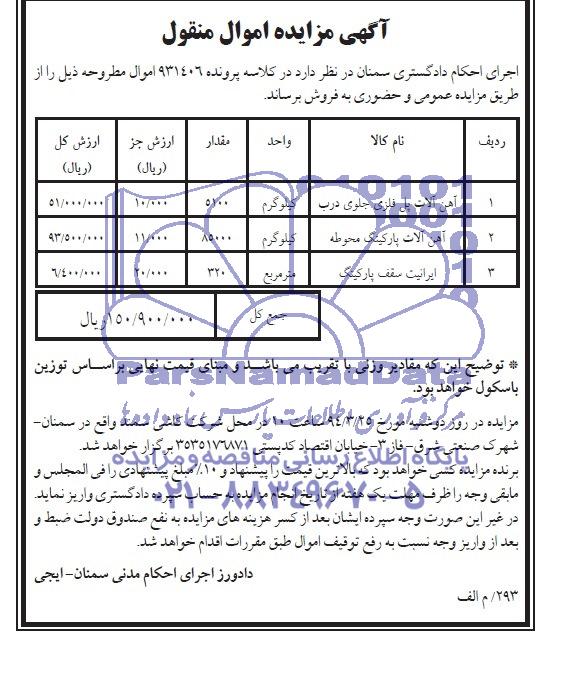 آگهی مزایده اموال منقول
اجرای احکام دادگستری سمنان در نظر دارد در کلاسه پرونده ۹۳۱۴۰۶ اموال مطروحه ذیل را از
طریق مزایده عمومی و حضوری به فروش برساند.
ردیف نام کالا واحد مقدار ارزش جز (ریال) ارزش کل (ریال)
۱ آهن آلات پل فلزی جلوی درب کیلوگرم ۵۱۰۰ ۱۰/۰۰۰ ۵۱/۰۰۰/۰۰۰
۲ آهن آلات پارکینگ محوطه کیلوگرم ۸۵۰۰۰ ۱۱/۰۰۰ ۹۳/۵۰۰/۰۰۰
۳ ایرانیت سقف پارکینگ مترمربع ۳۲۰ ۲۰/۰۰۰ ۶/۴۰۰/۰۰۰
جمع کل ۱۵۰/۹۰۰/۰۰۰ریال
* توضیح این که مقادیر وزنی با تقریب می باشد و مبنای قیمت نهایی براساس توزین
باسکول خواهد بود.
ParsNamadData
مرکز فرآوری اطلاعات پارس نماد داده‌ها
مزایده در روز دوشنبه مورخ ۹۴/۳/۲۵ ساعت ۱۰ در محل شرکت کاشی سمند واقع در سمنان-
شهرک صنعتی شرق-فاز۳-خیابان اقتصاد کدپستی ۳۵۳۵۱۷۶۸۷۱ برگزار خواهد شد.
پایگاه اطلاع رسانی مناقصه و مزایده
برنده مزایده کسی خواهد بود که بالاترین قیمت را پیشنهاد و ۱۰٪ مبلغ پیشنهادی را فی المجلس و
مابقی وجه را ظرف مهلت یک هفته از تاریخ انجام مزایده به حساب سپرده دادگستری واریز نماید.
۰۲۱-۸۸۳۴۹۶۷۰-۵
در غیر این صورت وجه سپرده ایشان بعد از کسر هزینه های مزایده به نفع صندوق دولت ضبط و
بعد از واریز وجه نسبت به رفع توقیف اموال طبق مقررات اقدام خواهد شد.
دادورز اجرای احکام مدنی سمنان-ایجی
۲۹۳/ م الف